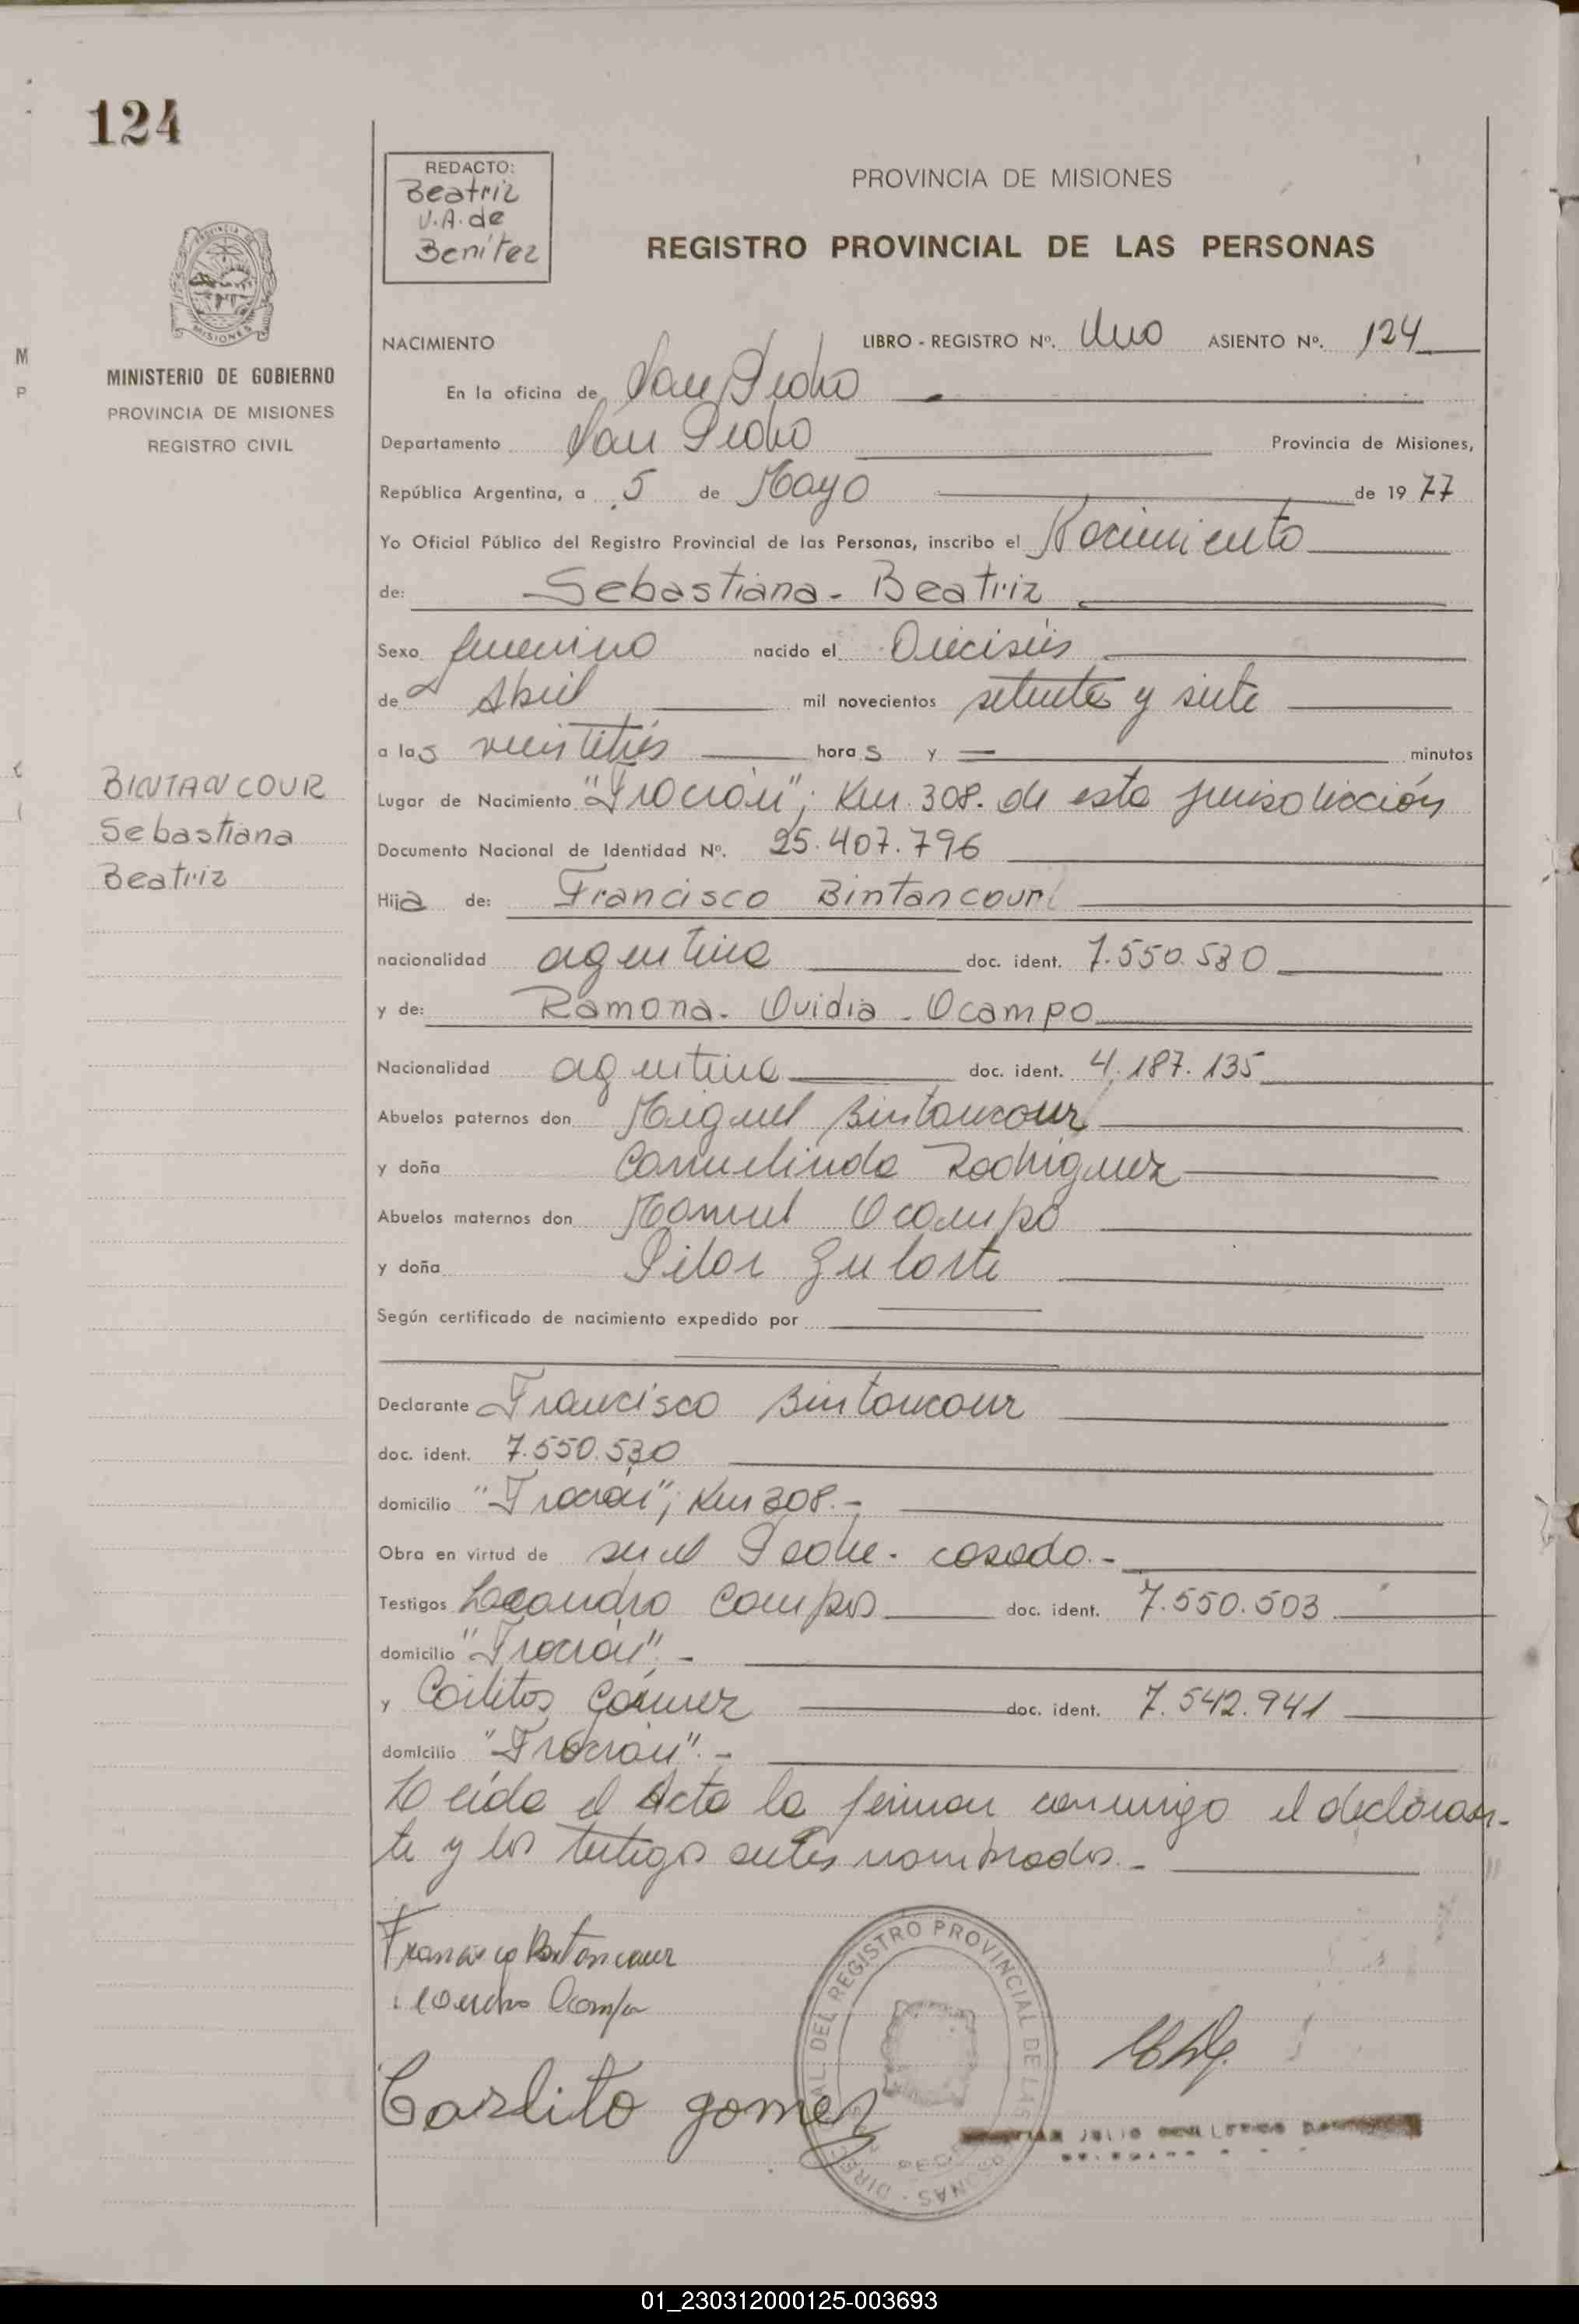 124
REDACTO:
Beatriz
V.A. de
Benítez
PROVINCIA DE MISIONES
REGISTRO PROVINCIAL DE LAS PERSONAS
MISIONES
MINISTERIO DE GOBIERNO
PROVINCIA DE MISIONES
REGISTRO CIVIL
NACIMIENTO LIBRO - REGISTRO Nº. Uno ASIENTO Nº. 124
En la oficina de San Pedro
Departamento San Pedro Provincia de Misiones,
República Argentina, a 5 de Mayo de 1977
Yo Oficial Público del Registro Provincial de las Personas, inscribo el Nacimiento
de: Sebastiana - Beatriz
Sexo femenino nacido el Dieciséis
de Abril mil novecientos setenta y siete
a las veintitrés horas y = minutos
BINTANCOUR
Sebastiana
Beatriz
Lugar de Nacimiento "Fracrán"; Km. 308. de esta jurisdicción
Documento Nacional de Identidad Nº. 25.407.796
Hija de: Francisco Bintancour
nacionalidad agentina doc. ident. 7.550.530
y de: Ramona - Ovidia - Ocampo
Nacionalidad agentina doc. ident. 4.187.135
Abuelos paternos don Miguel Bintancour
y doña Carmelinda Rodriguez
Abuelos maternos don Manuel Ocampo
y doña Pilar Gularte
Según certificado de nacimiento expedido por
Declarante Francisco Bintancour
doc. ident. 7.550.530
domicilio "Fracrán"; Km 308.-
Obra en virtud de ser el Padre - casado.-
Testigos Leandro Campos doc. ident. 7.550.503
domicilio "Fracrán".-
y Carlitos Gómez doc. ident. 7.542.941
domicilio "Fracrán".-
Leída el Acta la firman conmigo el declaran-
te y los testigos antes nombrados.-
Francisco Bintancour
Leandro Ocampo
Carlito gomez
DIREC AL. DEL REGISTRO PROVINCIAL DE LAS PERSONAS
JULIO